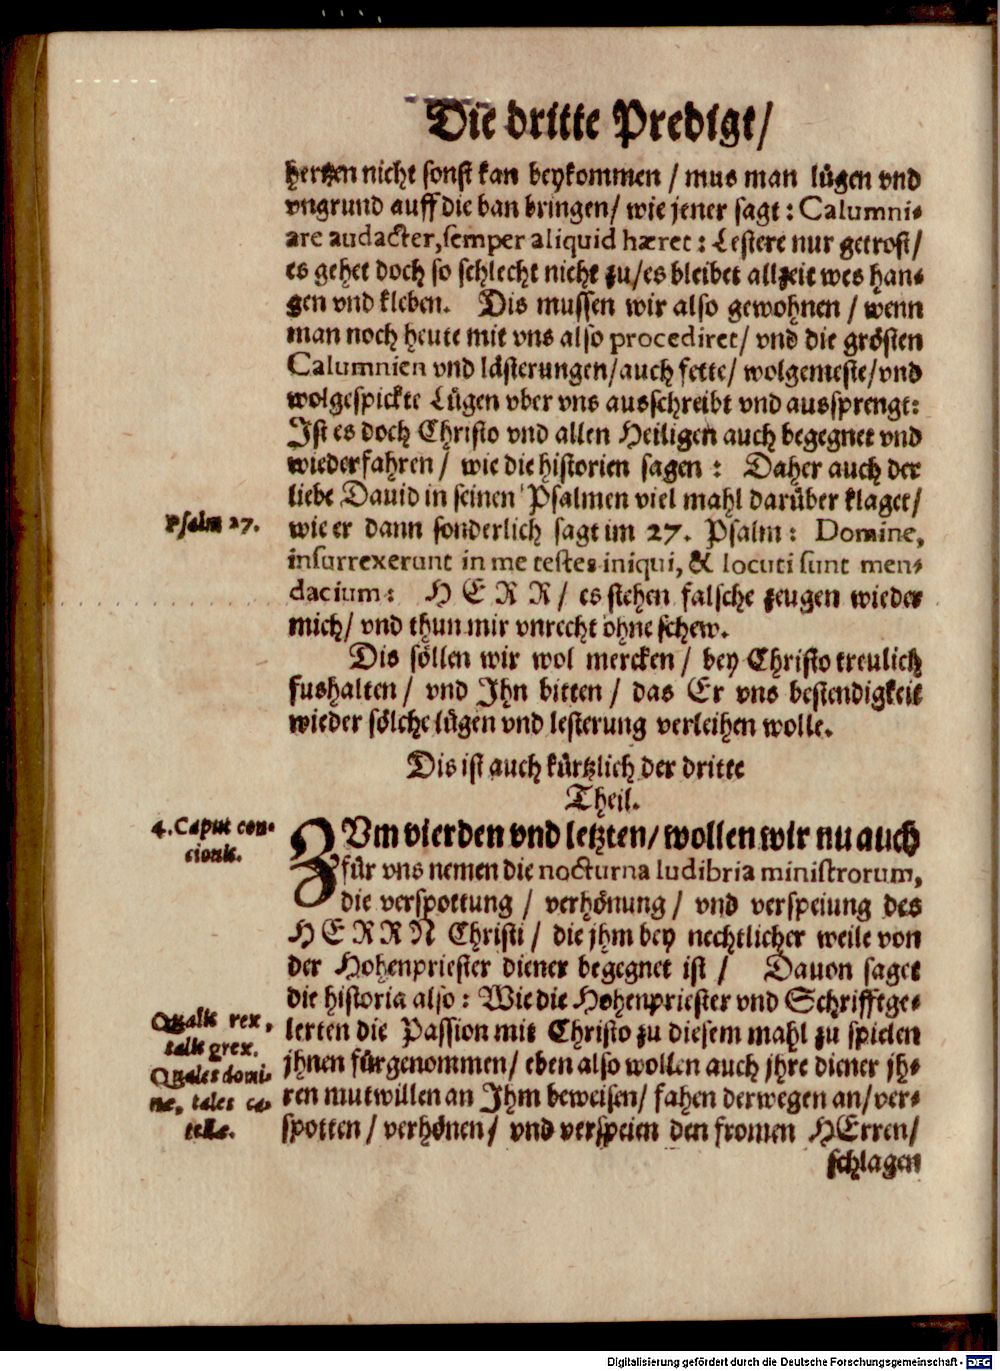 Die dritte Predigt/
hertzen nicht sonst kan beykommen / mus man lügen vnd
vngrund auff die ban bringen/ wie jener sagt: Calumni-
are audacter, semper aliquid hæret: Lestere nur getrost/
es gehet doch so schlecht nicht zu/es bleibet allzeit wes han-
gen vnd kleben. Dis mussen wir also gewohnen / wenn
man noch heute mit vns also procediret/ vnd die grösten
Calumnien vnd lästerungen/auch fette/ wolgemeste/vnd
wolgespickte Lügen vber vns ausschreibt vnd aussprengt:
Ist es doch Christo vnd allen Heiligen auch begegnet vnd
wiederfahren / wie die historien sagen: Daher auch der
liebe Dauid in seinen Psalmen viel mahl darüber klaget/
Psalm 27.
wie er dann sonderlich sagt im 27. Psalm: Domine,
insurrexerunt in me testes iniqui, & locuti sunt men-
dacium: HERR/ es stehen falsche zeugen wieder
mich/ vnd thun mir vnrecht ohne schew.
Dis söllen wir wol mercken/ bey Christo treulich
fushalten/ vnd Ihn bitten/ das Er vns bestendigkeit
wieder sölche lügen vnd lesterung verleihen wolle.
Dis ist auch kürtzlich der dritte
Theil.
4. Caput con-
cionis.
ZVm vierden vnd letzten/ wollen wir nu auch
für vns nemen die nocturna ludibria ministrorum,
die verspottung / verhönung / vnd verspeiung des
HERRN Christi / die jhm bey nechtlicher weile von
der Hohenpriester diener begegnet ist / Dauon saget
die historia also: Wie die Hohenpriester vnd Schrifftge-
Qualis rex,
talis grex.
Quales domi-
næ, tales ca-
tellæ.
lerten die Passion mit Christo zu diesem mahl zu spielen
jhnen fürgenommen/ eben also wollen auch jhre diener jh-
ren mutwillen an Ihm beweisen/ fahen derwegen an/ ver-
spotten/ verhönen/ vnd verspeien den fromen HErren/
schlagen
Digitalisierung gefördert durch die Deutsche Forschungsgemeinschaft - DFG